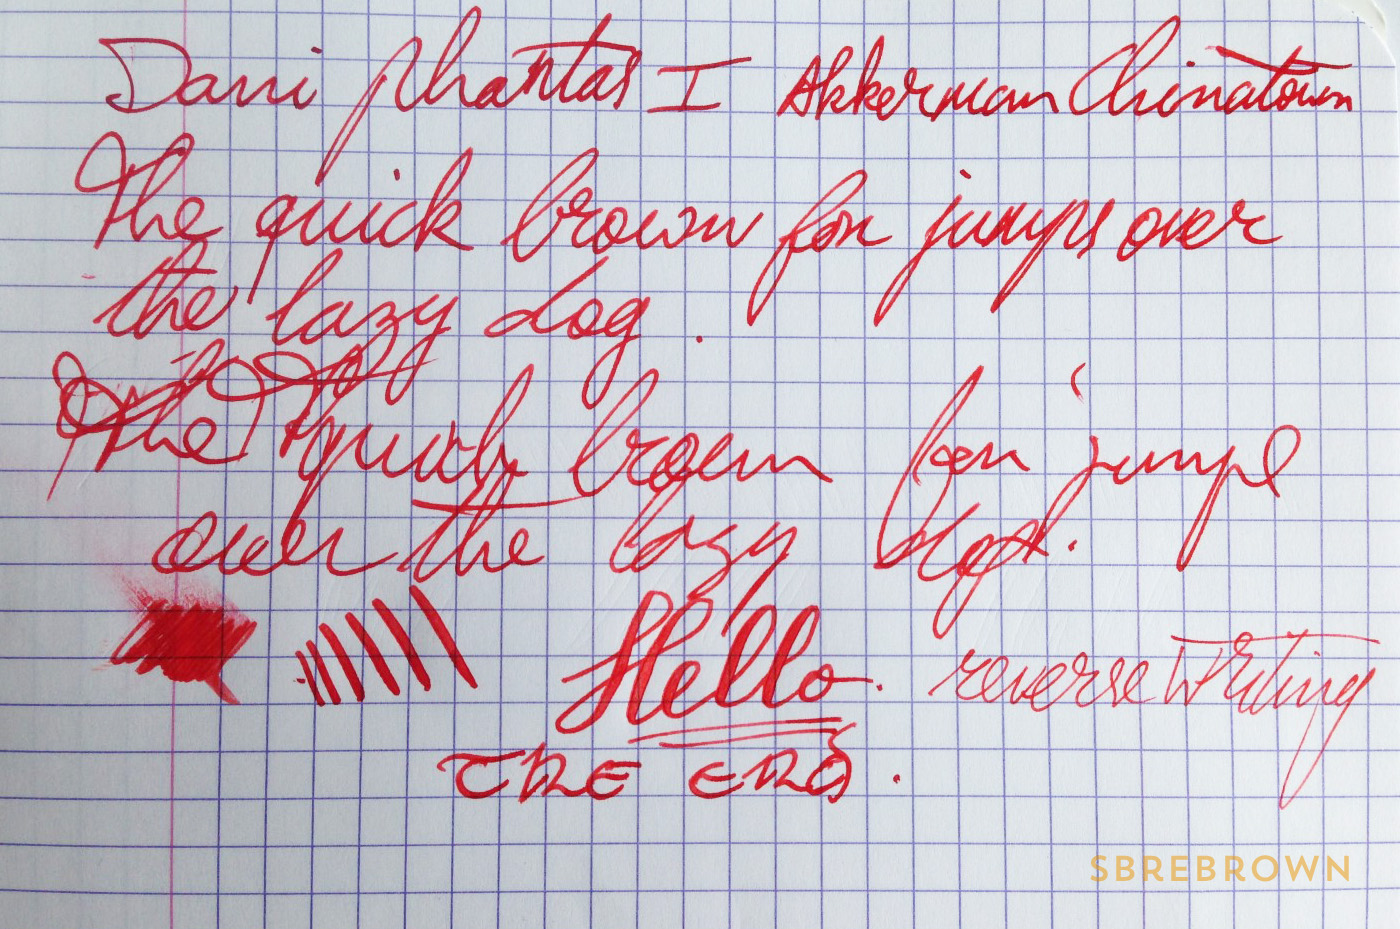 Dani Phantas I Akkerman Chinatown
The quick brown fox jumps over
the lazy dog.
The quick brown fox jumps
over the lazy dog.
Hello.
reverse writing
THE END.
SBREBROWN